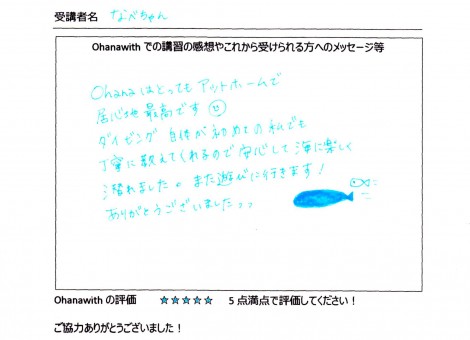 受講者名 なべちゃん
Ohanawith での講習の感想やこれから受けられる方へのメッセージ等
Ohanaはとってもアットホームで
居心地最高です☺
ダイビング自体が初めての私でも
丁寧に教えてくれるので安心して海に楽しく
潜れました。また遊びに行きます!
ありがとうございました..
Ohanawith の評価 ★★★★★ 5点満点で評価してください!
ご協力ありがとうございました!